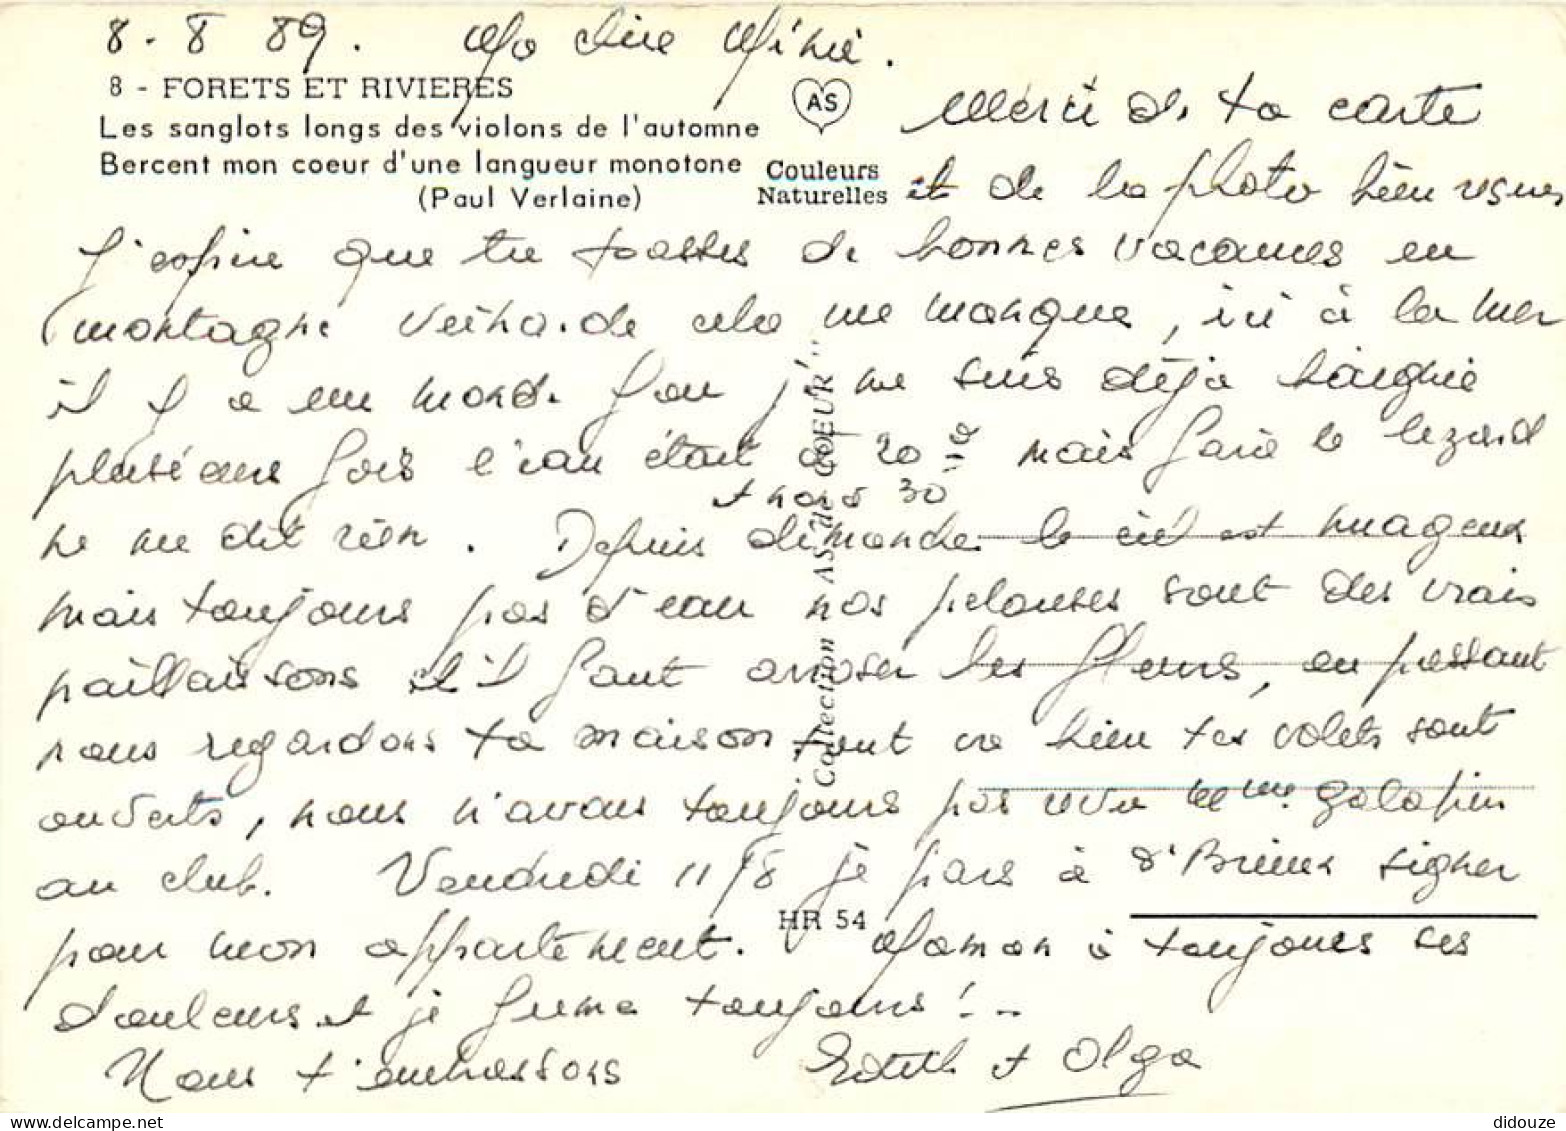 8 . 8 89. Ma chère Mimie.
8 - FORETS ET RIVIERES
Les sanglots longs des violons de l'automne
Bercent mon coeur d'une langueur monotone
(Paul Verlaine)
AS
Couleurs
Naturelles
Merci de ta carte
et de la photo bien reçues
J'espère que tu passes de bonnes vacances en
montagne cela me manque, ici à la mer
il y a un monde fou je me suis déjà baignée
plusieurs fois l'eau était à 20 mais faire le lezard
ne me dit rien. Depuis dimanche le ciel est nuageux
+ hors 30
mais toujours pas d'eau nos pelouses sont des vrais
paillassons et il faut arroser les fleurs, en passant
nous regardons ta maison tout va bien tes volets sont
ouverts, nous n'avons toujours pas revu Mme galopin
au club. Vendredi 11/8 je pars à St Brieux signer
pour mon appartement. Maman à toujours ses
douleurs et je fume toujours !..
Nous t'embrassons Edith + Olga
Collection "AS de COEUR"
HR 54
didouze